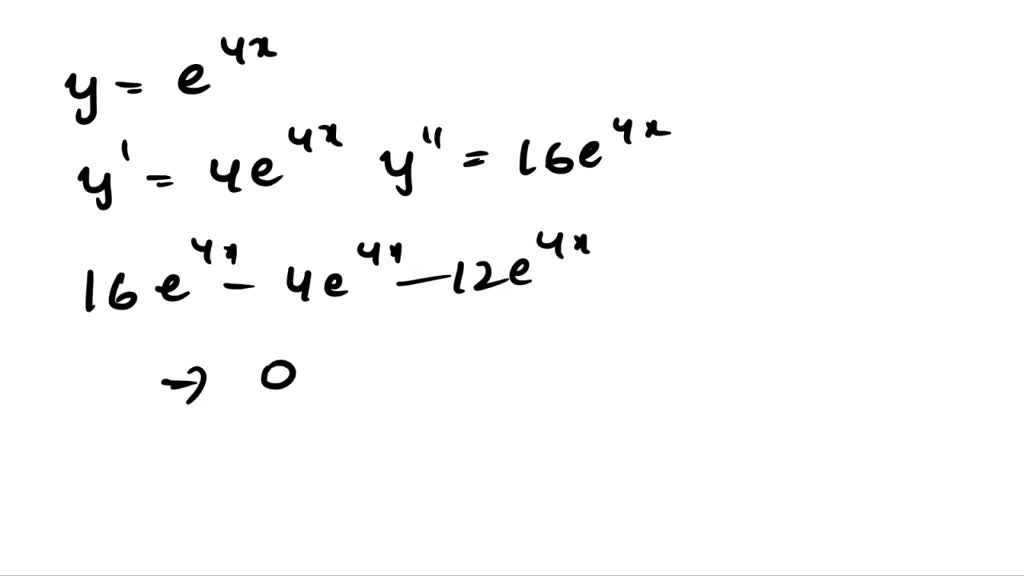 y = e^{4x}
y' = 4e^{4x} y'' = 16e^{4x}
16e^{4x} - 4e^{4x} - 12e^{4x}
→ 0